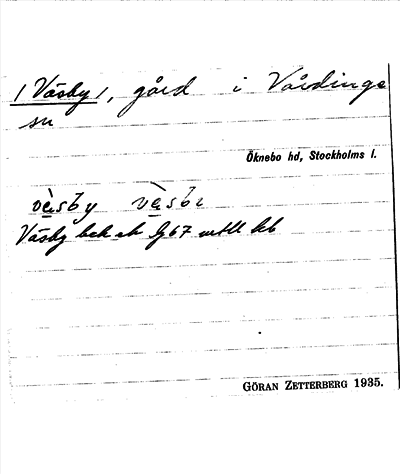 / Väsby /, gård i Vårdinge
sn
Öknebo hd, Stockholms l.
vèsby vèsbi
Väsby bek
GÖRAN ZETTERBERG 1935.